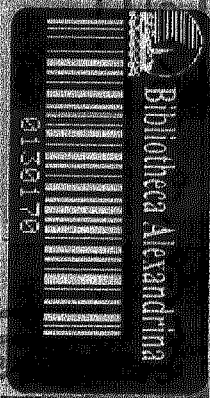 Bibliotheca Alexandrina
0130170